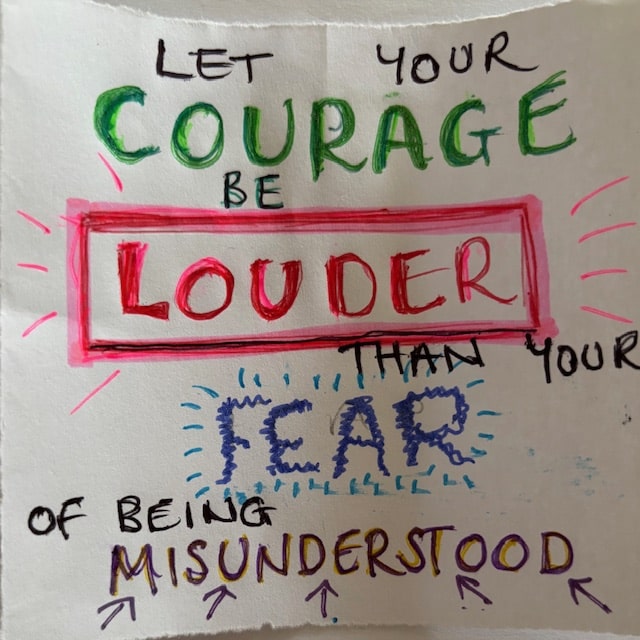 LET YOUR
COURAGE
BE
LOUDER
THAN YOUR
FEAR
OF BEING
MISUNDERSTOOD